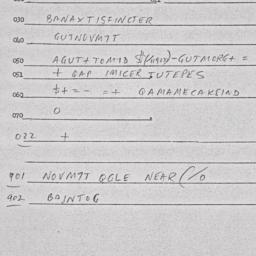 030 BANAXTISFINCTER
040 GUTNOVM7T
050 AGUT++TOMID -GUTMORG+ =
051 + GAP IMICER IUTEPES
060 $+=- =+ QAMAMECAKEIND
070 0
022 +
901 NOVM7T QGLE NEAR
902 BAJNTOG